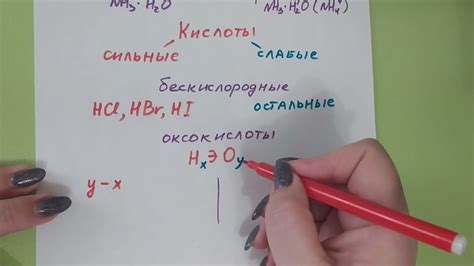 NH₃·H₂O NH₃·H₂O (NH₄⁺)
Кислоты
сильные слабые
бескислородные
HCl, HBr, HI остальные
оксокислоты
HₓЭOᵧ
y-x